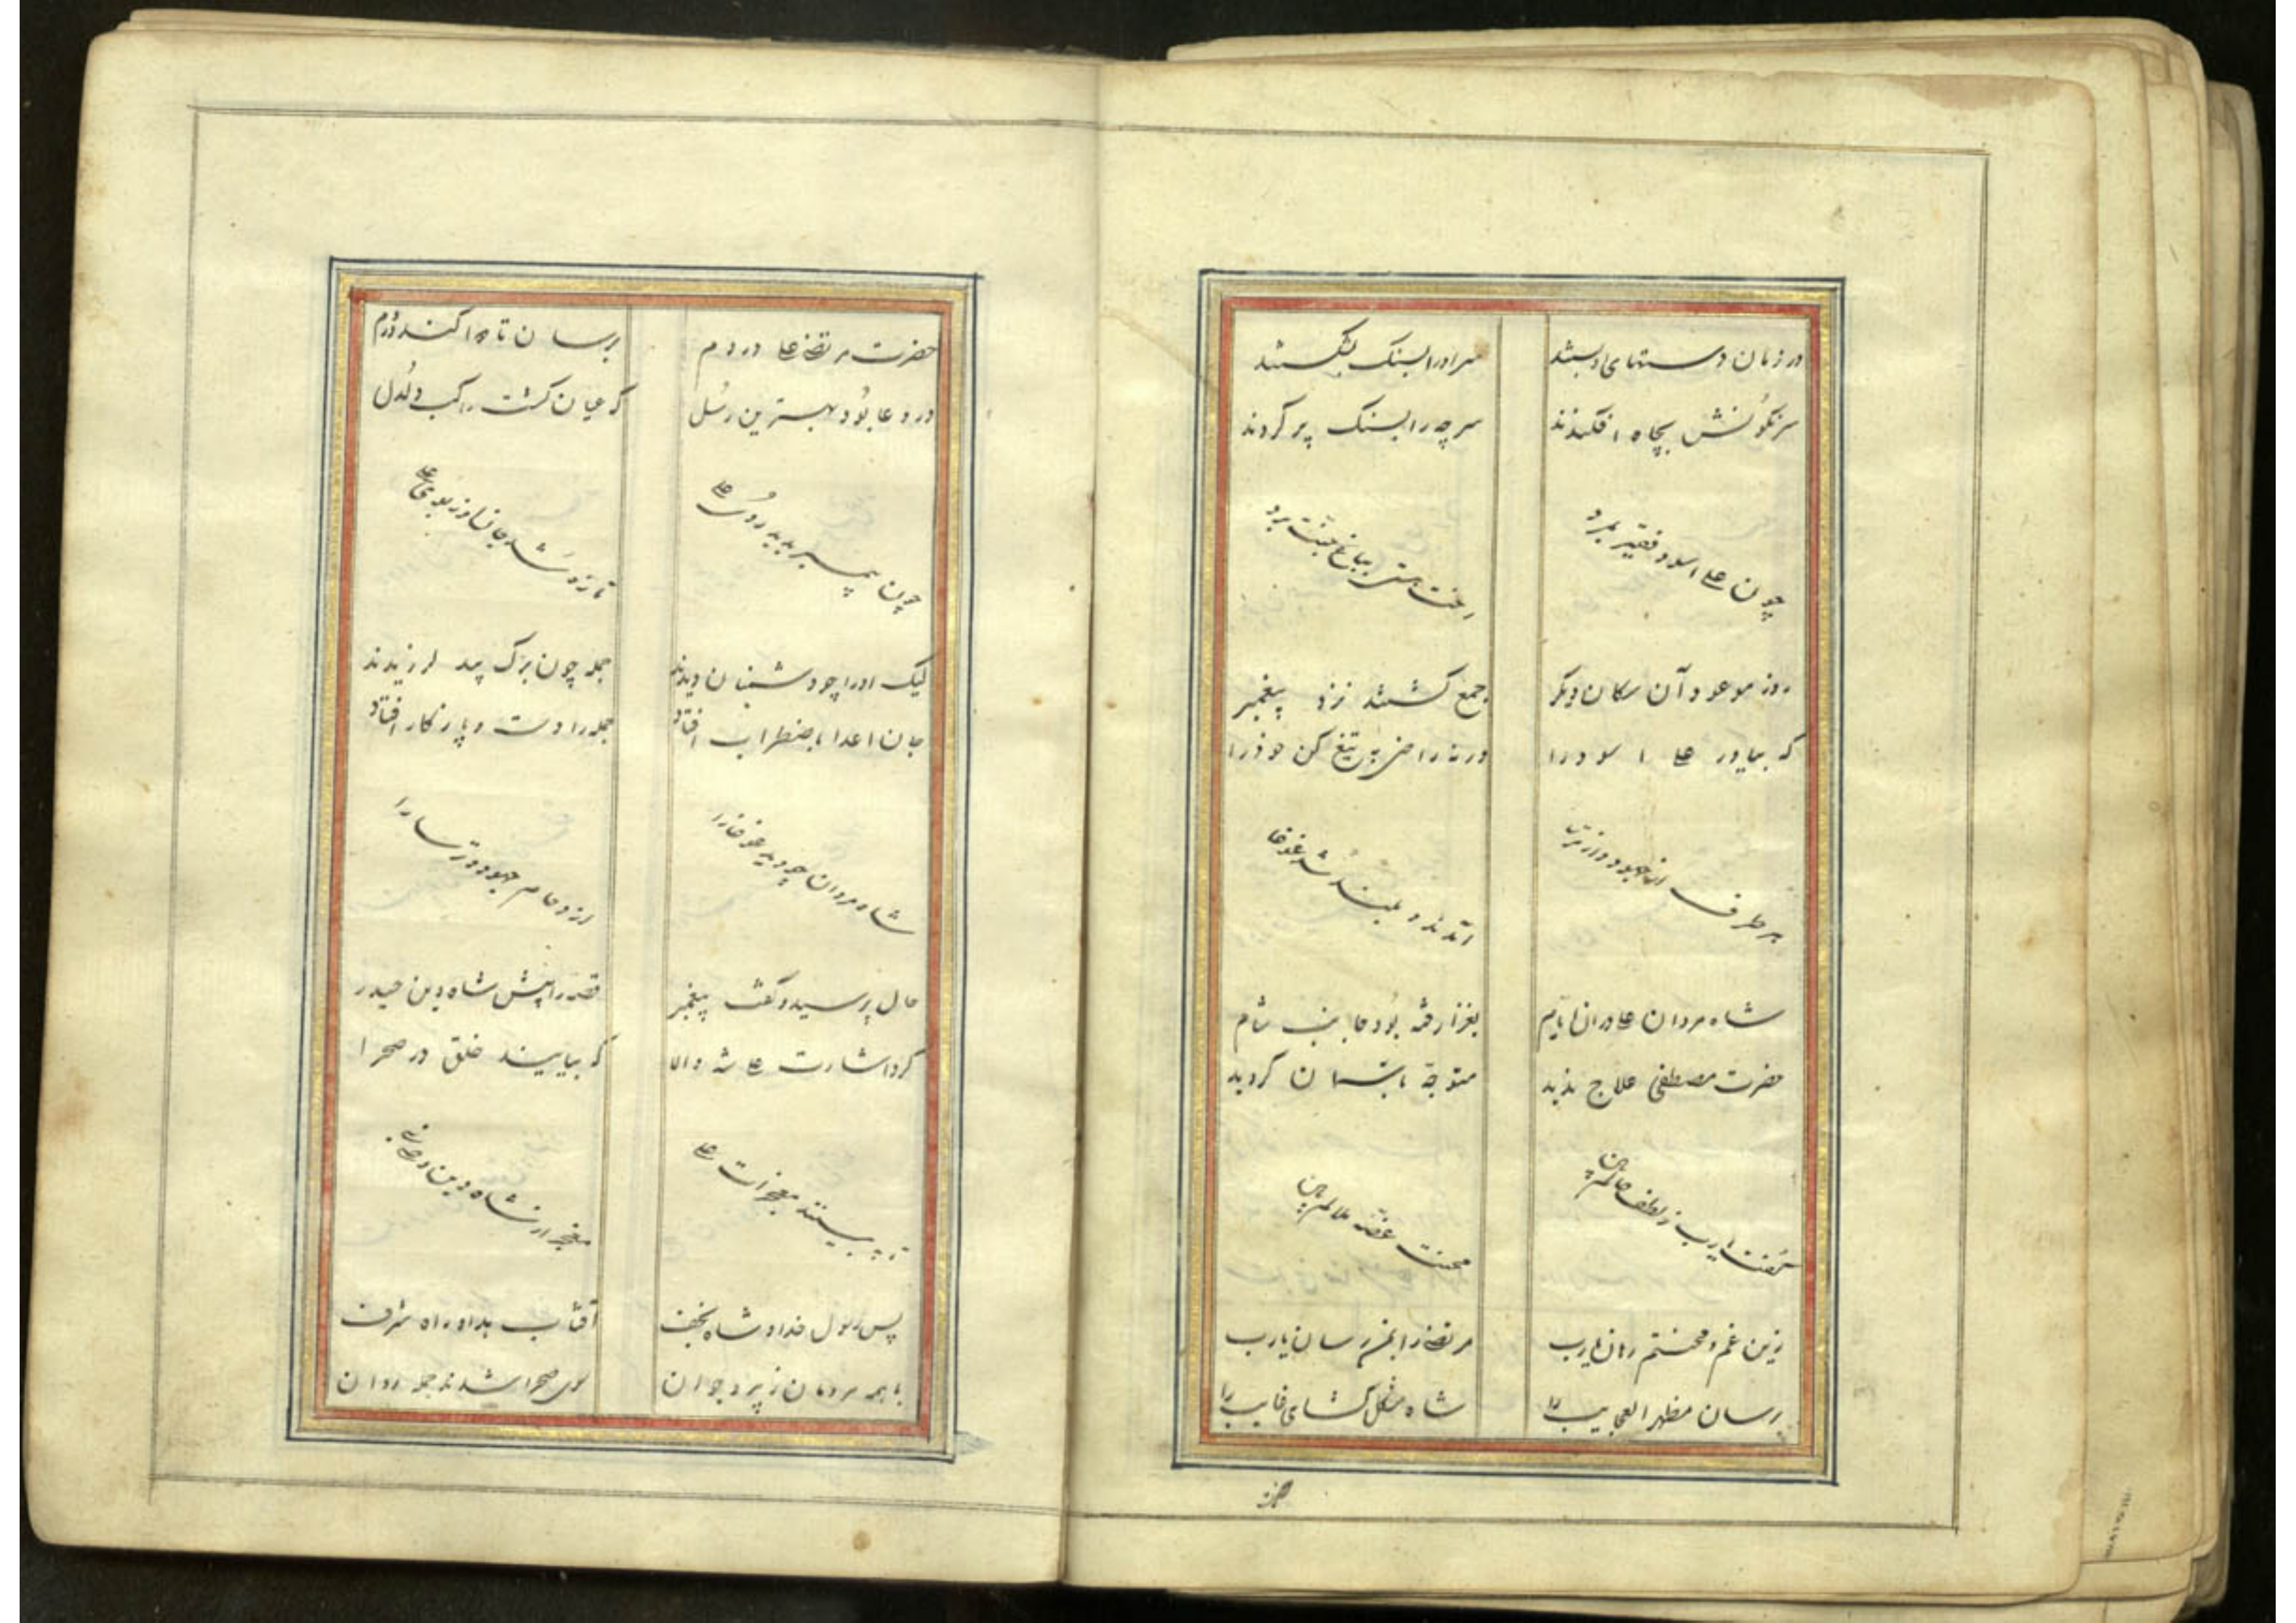 در زمان دستهای او بستند سر او را بسنک بشکستند
سرنکونش بچاه افکندند سر چه را بسنک پر کردند
چون علی اسود فقیر بمرد رخت هستی بباغ جنت برد
روز موعود آن سکان دیکر جمع کشتند نزد پیغمبر
که بیاور علی اسود را ورنه راضی به تیغ کن خود را
هر طرف از جهود و از ترسا آمدند و بلند شد غوغا
شاه مردان علی در آن ایام بغزا رفته بود جانب شام
حضرت مصطفی علاج ندید متوجه باسمان کردید
کفت یارب ز لطف حالم بین محنت غصه ملالم بین
زین غم و محنتم رهان یارب مرتضی را بمن رسان یارب
رسان مظهر العجایب را شاه مشکل کشای غایب را
حضرت
حضرت مرتضی علی در دم برسان تا دوا کند دردم
در دعا بود بهترین رسل که عیان کشت راکب دلدل
چون پیمبر بدید روی علی تازه شد جانش از بوی علی
لیک او را چو دشمنان دیدند جمله چون برک بید لرزیدند
جان اعدا باضطراب افتاد جمله را دست و پا ز کار افتاد
شاه مردان چو دید غوغا را ازدحام جهود و ترسا را
حال پرسید و کفت پیغمبر قصه را پیش شاه دین حیدر
کرد اشارت علی شه والا که بیایند خلق در صحرا
تا ببینند معجزات علی معجز از شاه دین
پس رسول خدا و شاه نجف آفتاب هدا و راه شرف
با همه مردمان ز پیر و جوان سوی صحرا شدند جمله روان